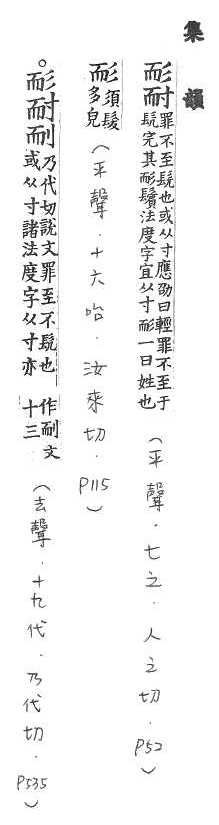 集韻
耏耐 罪不至髡也或从寸應劭曰輕罪不至于
髡完其耏鬢法度字宜从寸耏一曰姓也
（平聲．七之．人之切．P52）
耏 須髮
多皃
（平聲．十六咍．汝來切．P115）
。耏耐 乃代切說文罪至不髡也
或从寸諸法度字从寸亦
作 文
十三
（去聲．十九代．乃代切．P535）